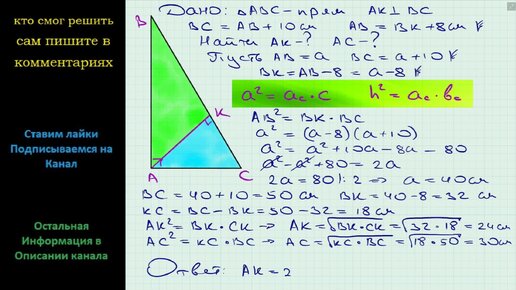 кто смог решить
сам пишите в
комментариях
Ставим лайки
Подписываемся на
Канал
Остальная
Информация в
Описании канала
B
K
A
C
Дано: ΔABC - прям AK⊥BC
BC = AB + 10см AB = BK + 8см
Найти AK-? AC-?
Пусть AB = a BC = a + 10
BK = AB - 8 = a - 8
a² = a_c · c h² = a_c · b_c
AB² = BK · BC
a² = (a-8)(a+10)
a² = a² + 10a - 8a - 80
a² - a² + 80 = 2a
2a = 80 |: 2 → a = 40см
BC = 40 + 10 = 50см BK = 40 - 8 = 32см
KC = BC - BK = 50 - 32 = 18см
AK² = BK · CK → AK = √BK·CK = √32·18 = 24см
AC² = KC · BC → AC = √KC·BC = √18·50 = 30см
Ответ: AK = 2